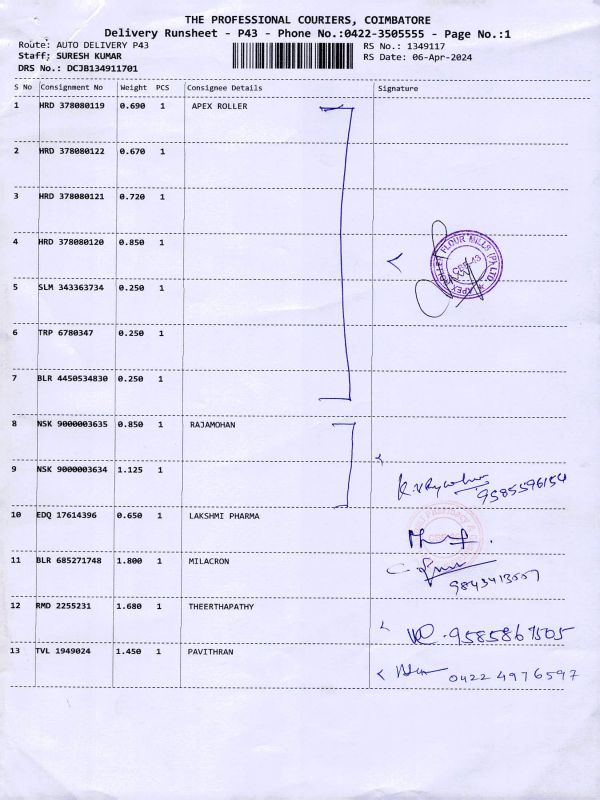 THE PROFESSIONAL COURIERS, COIMBATORE
Delivery Runsheet - P43 - Phone No.:0422-3505555 - Page No.:1
Route: AUTO DELIVERY P43 RS No.: 1349117
Staff; SURESH KUMAR RS Date: 06-Apr-2024
DRS No.: DCJB134911701
S No Consignment No Weight PCS Consignee Details Signature
1 HRD 378080119 0.690 1 APEX ROLLER
2 HRD 378080122 0.670 1
3 HRD 378080121 0.720 1
4 HRD 378080120 0.850 1
FLOUR MILLS (P) LTD. APEX ROLLER
5 SLM 343363734 0.250 1
6 TRP 6780347 0.250 1
7 BLR 4450534830 0.250 1
8 NSK 9000003635 0.850 1 RAJAMOHAN
9 NSK 9000003634 1.125 1
9585596154
10 EDQ 17614396 0.650 1 LAKSHMI PHARMA
11 BLR 685271748 1.800 1 MILACRON
9843413007
12 RMD 2255231 1.680 1 THEERTHAPATHY
9585867505
13 TVL 1949024 1.450 1 PAVITHRAN
0422 4976597